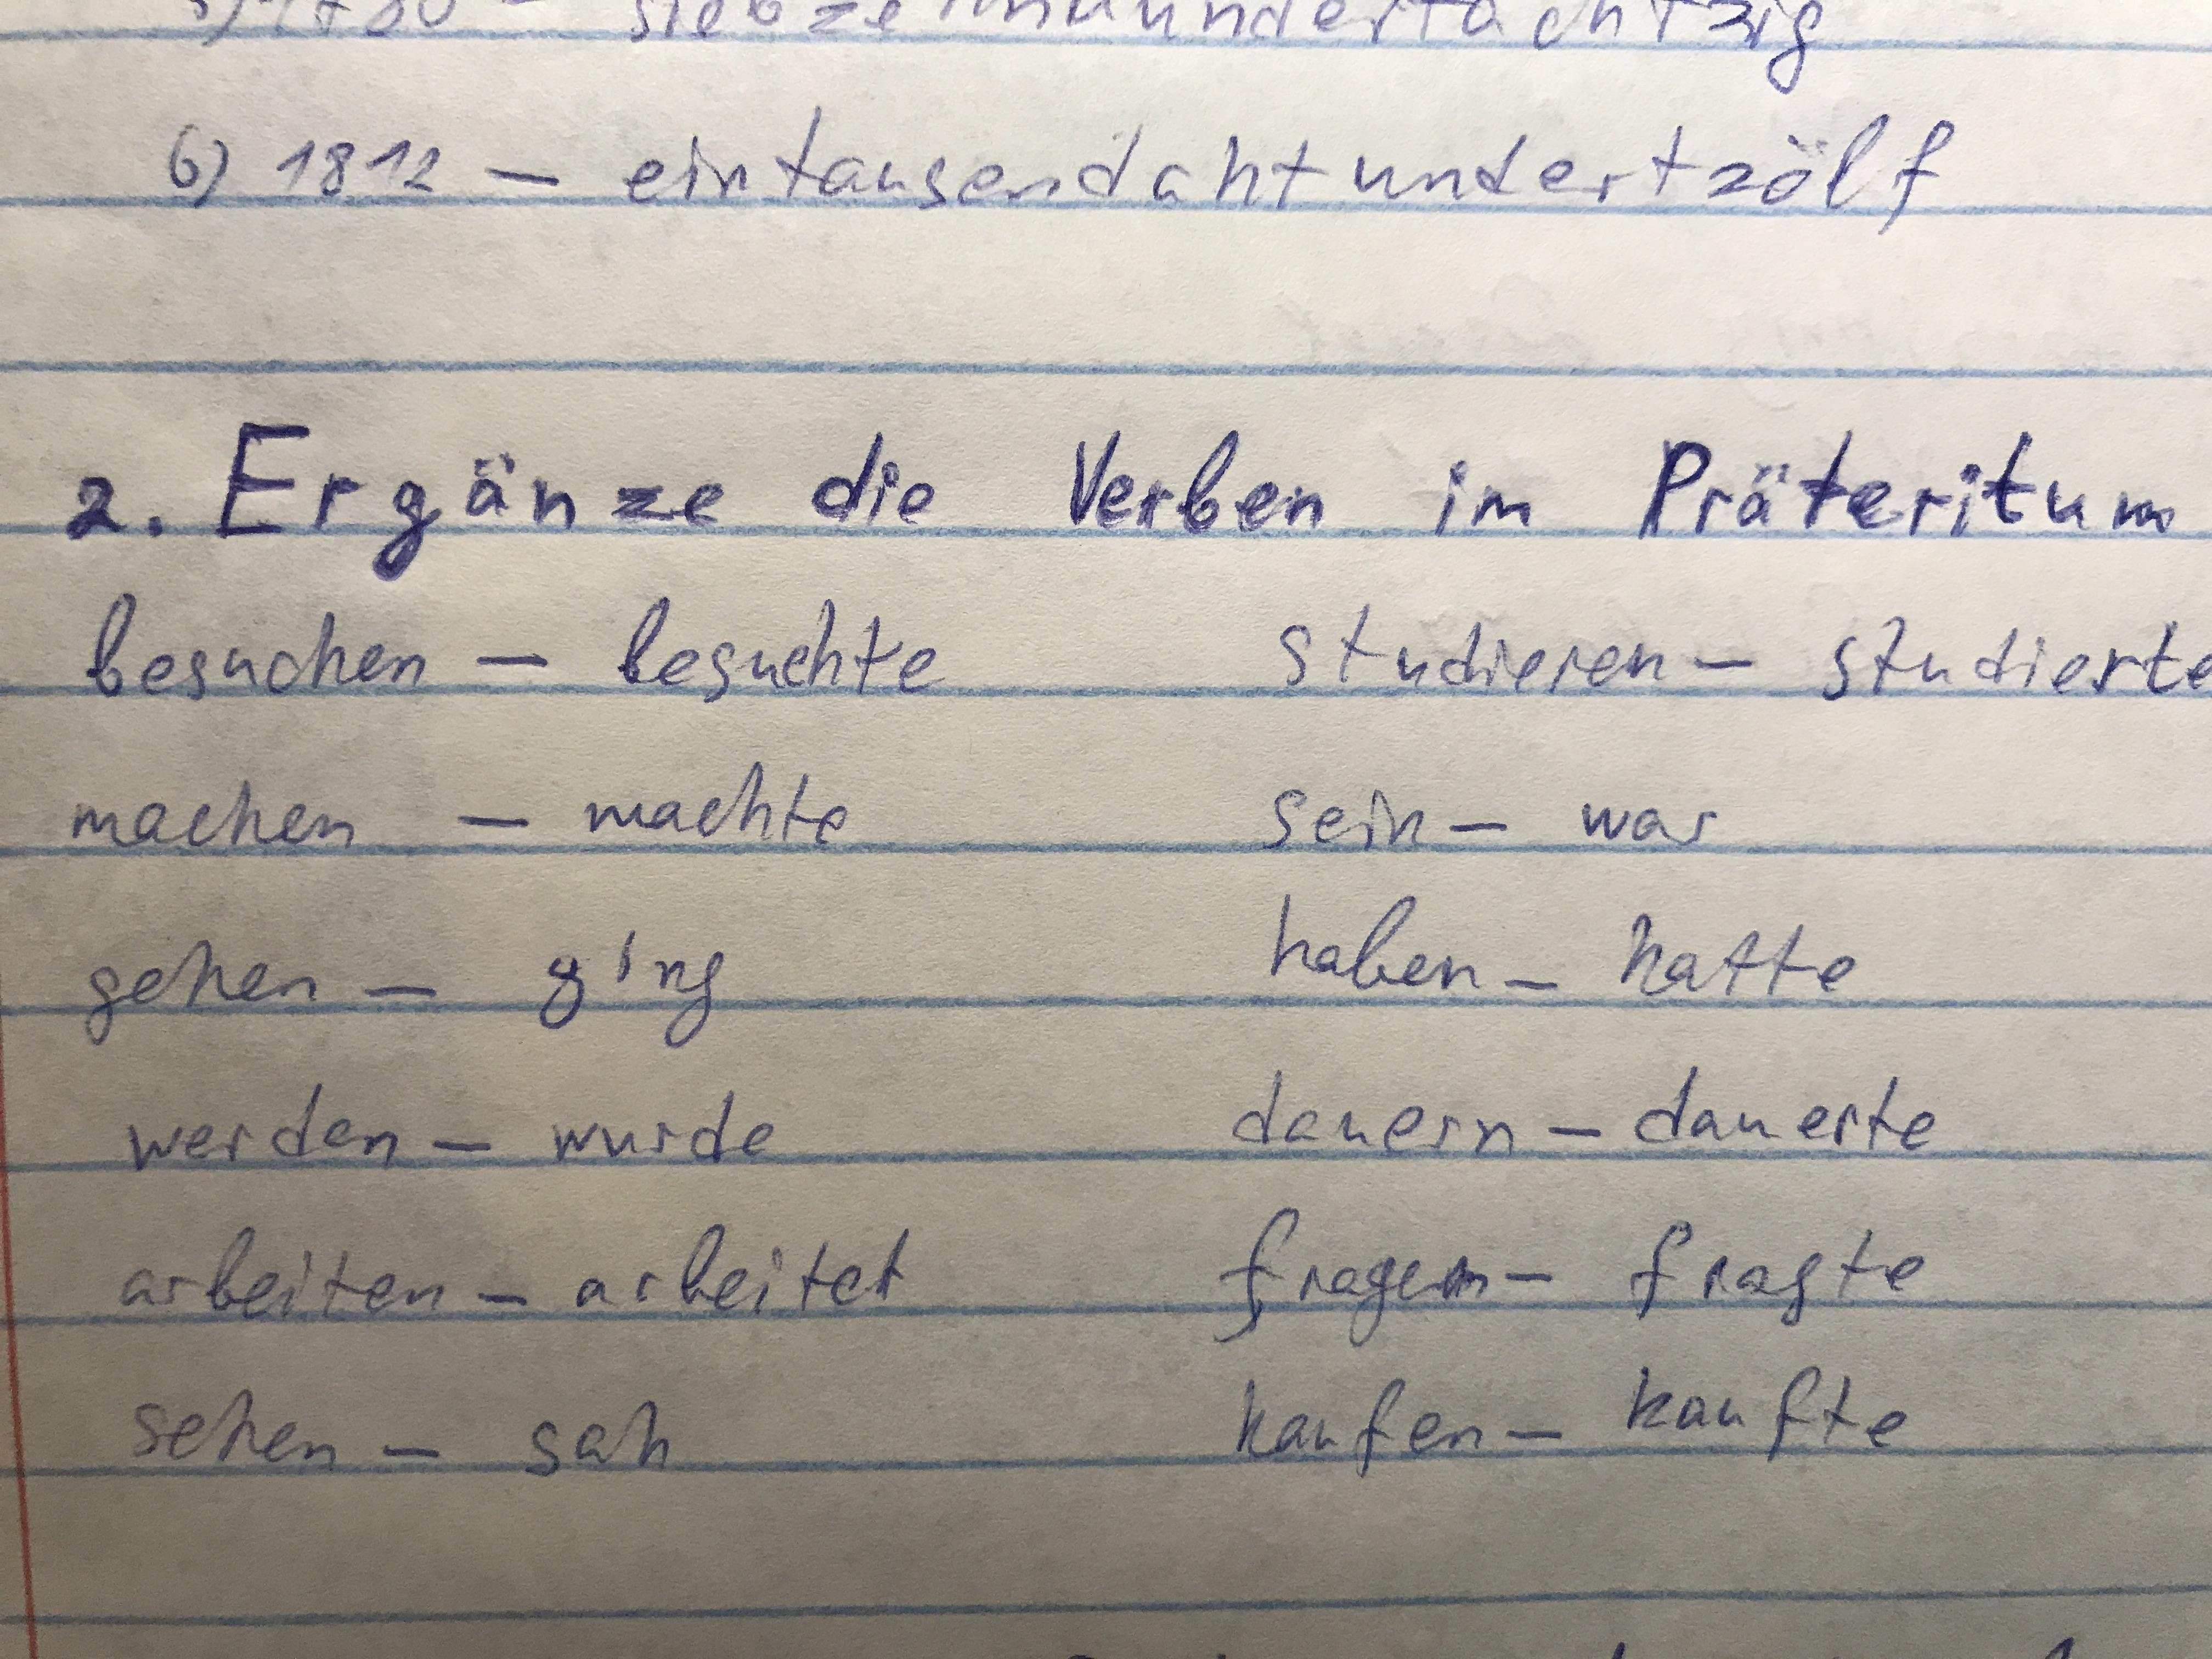 siebzehnhundertachtzig
6) 1812 — eintausendahtundertzölf
2. Ergänze die Verben im Präteritum
besuchen — besuchte studieren — studierte
machen — machte sein — war
gehen — ging haben — hatte
werden — wurde dauern — dauerte
arbeiten — arbeitet fragen — fragte
sehen — sah kaufen — kaufte